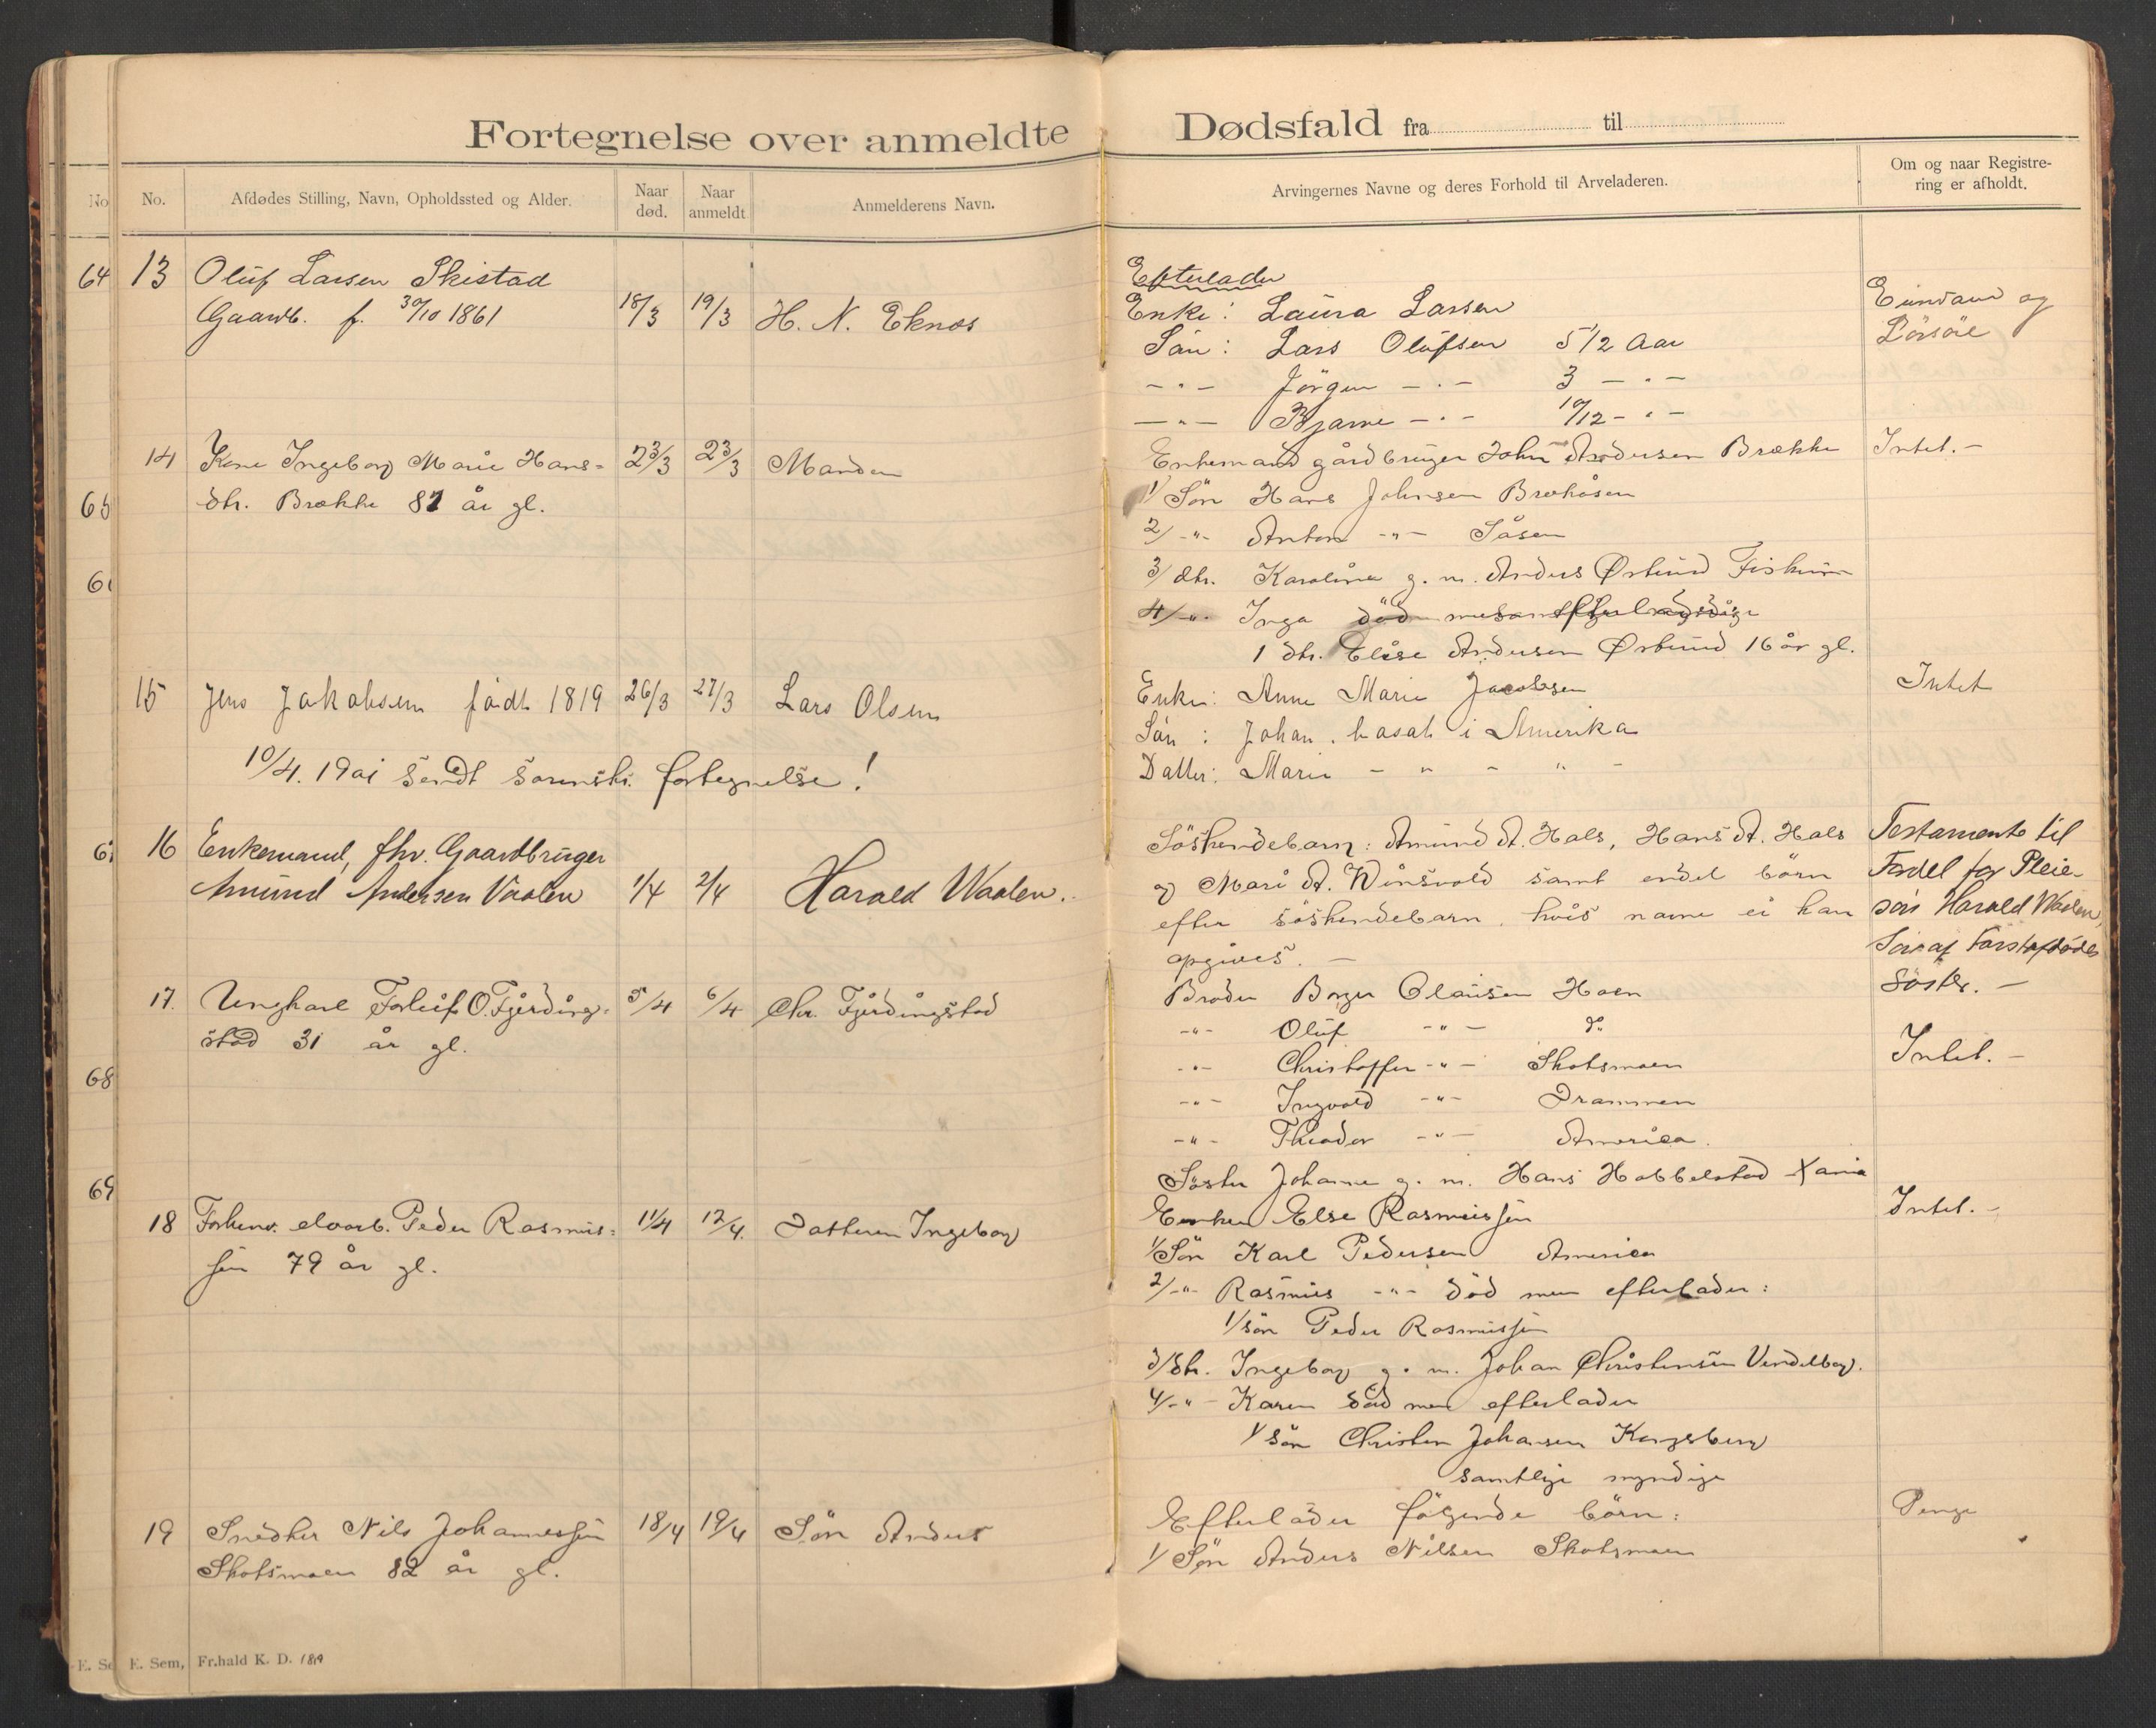 Fortegnelse over anmeldte Dødsfald fra til
No. Afdødes Stilling, Navn, Opholdssted og Alder. Naar død. Naar anmeldt Anmelderens Navn. Arvingernes Navne og deres Forhold til Arveladeren. Om og naar Registrering er afholdt.
13 Oluf Larsen Skistad
Gaardb. f. 30/10 1861 18/3 19/3 H. N. Eknæs
Efterlader
Enke: Laura Larsen
Sön: Lars Olufsen 5 1/2 Aar
-"- Jörgen -"- 3 -"-
-"- Bjarne -"- 10/12 -"-
Eiendom og
Lösöre
14 Kone Ingeborg Marie Hans-
dtr. Brække 81 år gl. 23/3 23/3 Manden
Enkemand gårdbruger John Andersen Brække Intet.-
1/ Sön Hans Johnsen Brækåsen
2/ -"- Anton -"- Såsen
3/ dtr. Karoline g. m. Anders Ørbund Fiskum
4/ -"- Inga död
1 dtr. Elise Andersen Ørbund 16 år gl.
15 Jens Jakobsen födt 1819 26/3 27/3 Lars Olsen
10/4. 1901 Sendt Sorenskr. fortegnelse!
Enke: Anne Marie Jacobsen Intet
Sön: Johan. bosat i Amerika
Datter: Marie - " - " -
16 Enkemand, fhv. Gaardbruger
Amund Andersen Vaalen 1/4 2/4 Harald Waalen.
Söskendebarn: Amund A. Hals, Hans A. Hals
og Mari A. Winsvold samt endel börn
efter söskendebarn, hvis navne ei kan
opgives. -
Testamente til
Fordel for Pleie-
sön Harald Waalen,
Sön af Förstafdödes
Söster. -
17. Ungkarl Torleif O. Fjerding-
stad 31 år gl. 5/4 6/4 Chr. Fjerdingstad
Broder Borger Olausen Hoen
-"- Oluf -"- do
-"- Christoffer -"- Skotsmoen
-"- Ingvald -"- Drammen
-"- Theodor -"- America.
Söster Johanne g. m. Hans Hobbelstad Xania
Intet. -
18 Forhenv. elvarb. Peder Rasmus-
sen 79 år gl. 11/4 12/4. Datteren Ingeborg
Enken Else Rasmussen Intet. -
1/ Sön Karl Pedersen America
2/ -"- Rasmus -"- död men efterlader:
1/ sön Peder Rasmussen
3/ dtr. Ingeborg g. m. Johan Christensen Vendelborg.
4/ -"- Karen död men efterlader
1/ sön Christen Johansen Kongsberg
samtlige myndige
19 Snedker Nils Johannessen
Skotsmoen 82 år gl. 18/4 19/4 Sön Anders
Efterlader fölgende börn: Penge
1/ Sön Anders Nilsen Skotsmoen
No
64
65
68
69
E. Sem, Fr.hald K. D.